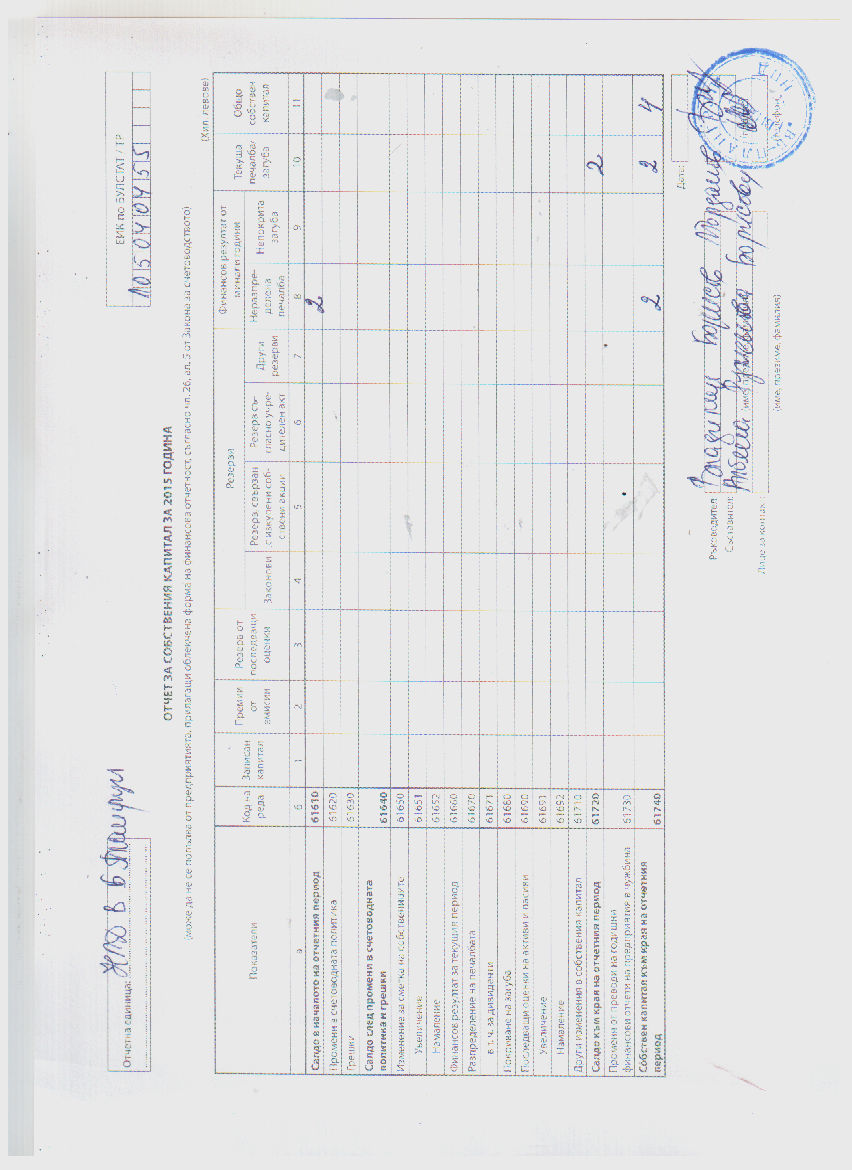 ЕИК по БУЛСТАТ / ТР
Отчетна единица:
ОТЧЕТ ЗА СОБСТВЕНИЯ КАПИТАЛ ЗА 2015 ГОДИНА
(може да не се попълва от предприятията, прилагащи облекчена форма на финансова отчетност, съгласно чл. 26, ал. 5 от Закона за счетоводството)
(Хил. левове)
Показатели
Код на реда
Записан капитал
Премии от емисии
Резерв от последващи оценки
Резерви
Финансов резултат от минали години
Текуща печалба/загуба
Общо собствен капитал
Законови
Резерв, свързан с изкупени собствени акции
Резерв съгласно учредителен акт
Други резерви
Неразпределена печалба
Непокрита загуба
а б 1 2 3 4 5 6 7 8 9 10 11
Салдо в началото на отчетния период 61610 2
Промени в счетоводната политика 61620
Грешки 61630
Салдо след промени в счетоводната политика и грешки 61640
Изменение за сметка на собствениците 61650
Увеличение 61651
Намаление 61652
Финансов резултат за текущия период 61660
Разпределение на печалбата 61670
в т. ч. за дивиденти 61671
Покриване на загуба 61680
Последващи оценки на активи и пасиви 61690
Увеличение 61691
Намаление 61692
Други изменения в собствения капитал 61710
Салдо към края на отчетния период 61720 2
Промени от преводи на годишни финансови отчети на предприятия в чужбина 61730
Собствен капитал към края на отчетния период 61740 2 2 4
Дата:
Ръководител:
Съставител:
Лице за контакт:
(име, презиме, фамилия)